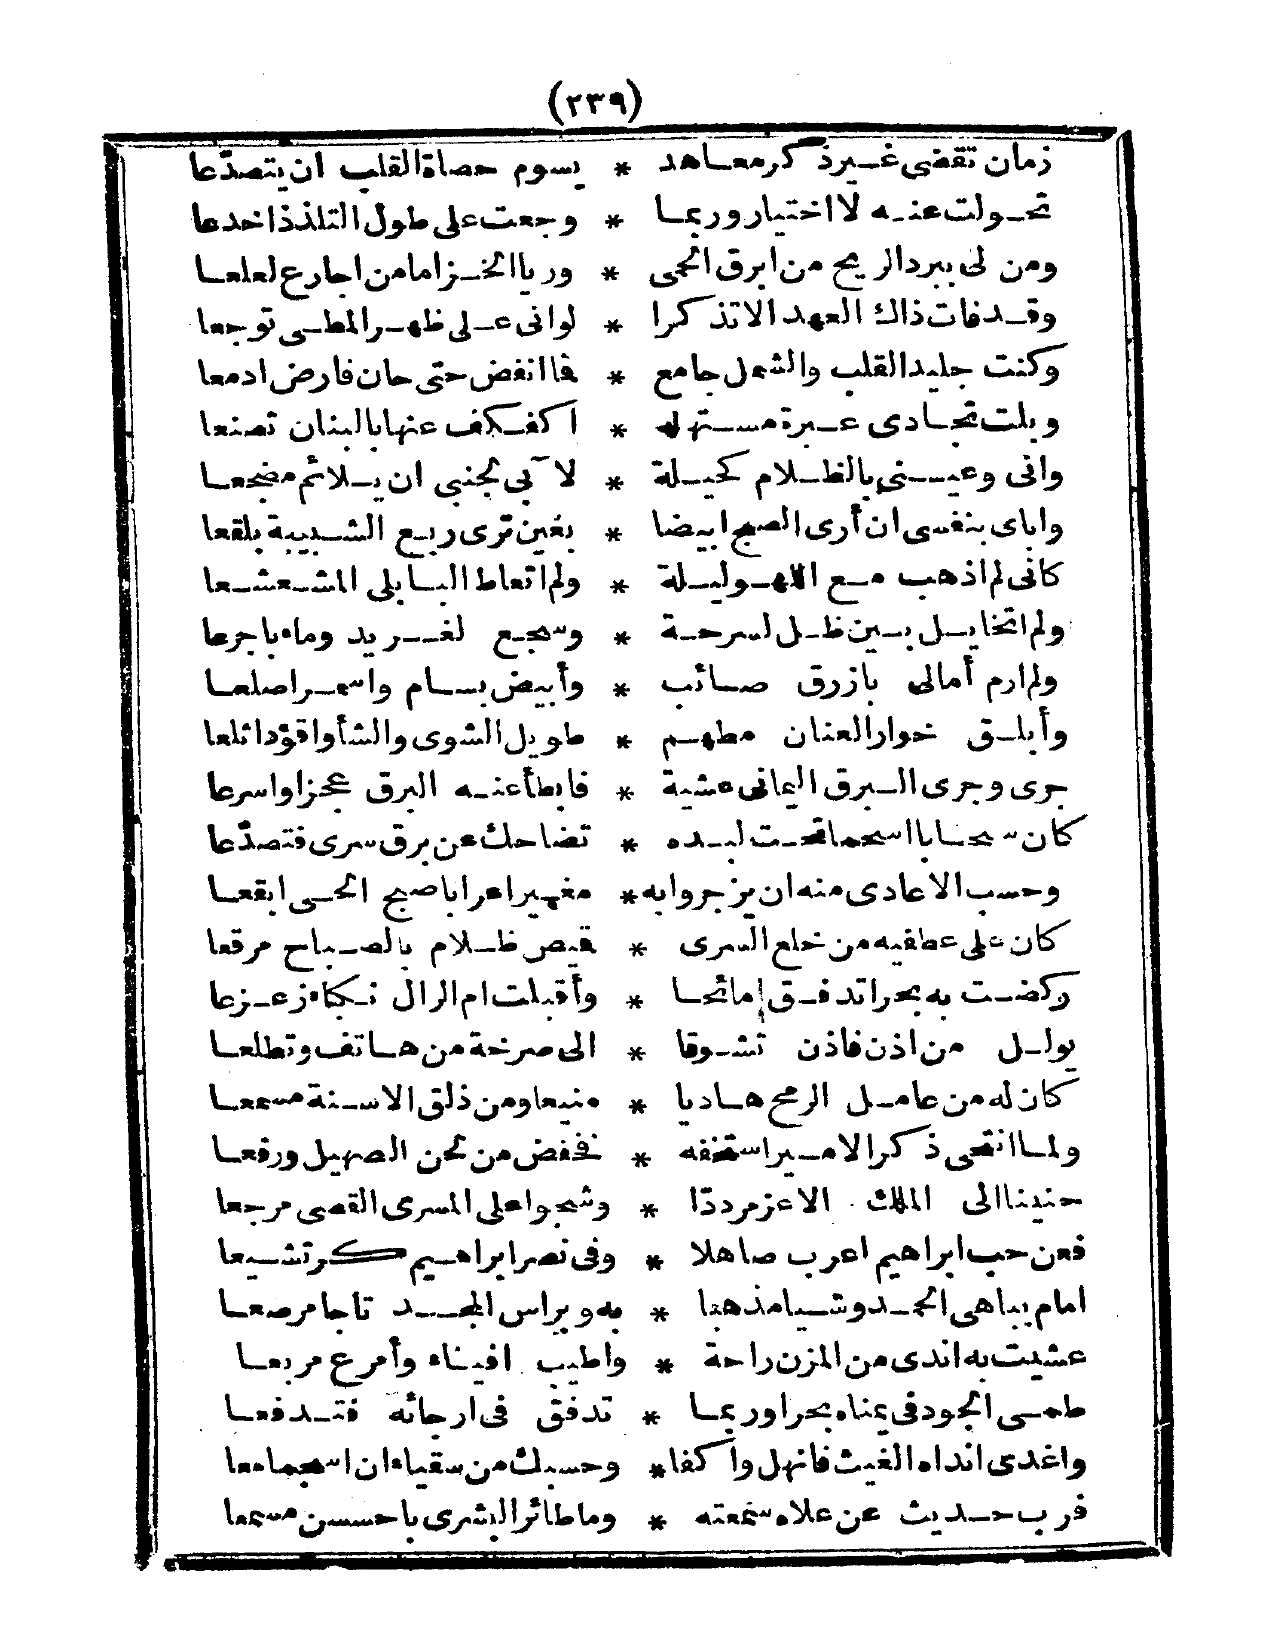 (٢٣٩)
زمان تقضى غير ذكر معاهد * يسوم حصاة القلب ان يتصدّعا
تحولت عنه لا اختيار وربما * وجعت على طول التلذذ اخدعا
ومن لى ببرد الريح من ابرق الحمى * وريا الخزاما من اجارع لعلعا
وقد فات ذاك العهد الا تذكرا * لوانى على ظهر المطى توجعا
وكنت جليد القلب والشمل جامع * فما انفض حتى حان فارض ادمعا
وبلت نجادى عبرة مستهلة * اكفكف عنها بالبنان تصنعا
وانى وعينى بالظلام كحيلة * لآبى لجنبى ان يلائم مضجعا
واباى بنفسى ان أرى الصبح ابيضا * بعين ترى ربع الشبيبة بلقعا
كانى لم اذهب مع اللهو ليلة * ولم اتعاط البابلى المشعشعا
ولم اتخايل بين ظل لسرحة * وسجع لغريد وماء باجرعا
ولم ارم أمالى بازرق صائب * وأبيض بسام واسمر اصلعا
وأبلق خوار العنان مطهم * طويل الشوى والشأو اقود اتلعا
جرى وجرى البرق اليمانى عشية * فابطأ عنه البرق عجزا واسرعا
كان سحابا اسحما تحت لبده * تضاحك عن برق سرى فتصدّعا
وحسب الاعادى منه ان يزجروا به * مغيرا غرابا صبح الحى ابقعا
كان على عطفيه من خلع السرى * قيص ظلام بالصباح مرقعا
ركضت به بحرا تدفق إمائحا * وأقبلت ام الرال نكباء زعزعا
يولل من اذن فاذن تشوقا * الى صرخة من هاتف وتطلعا
كان له من عامل الرمح هاديا * منيعا ومن ذلق الاسنة مسمعا
ولما انتحى ذكر الامير استخفه * فخفض من لحن الصهيل ورفعا
حنينا الى الملك الاعز مرددّا * وشجوا على المسرى القصى مرجعا
فعن حب ابراهيم اعرب صاهلا * وفى نصر ابراهيم كر تشيعا
امام يباهى الحمد وشيا مذهبا * به وبراس المجد تاجا مرصعا
عشيت به اندى من المزن راحة * واطيب افيناء وأمرع مربعا
طمى الجود فى يمناه بحرا وربما * تدفق فى ارجائه فتدفعا
واغدى انداه الغيث فانهل واكفا * وحسبك من سقياه ان اسجما معا
فرب حديث عن علاه سمعته * وما طائر البشرى باحسسن مسمعا